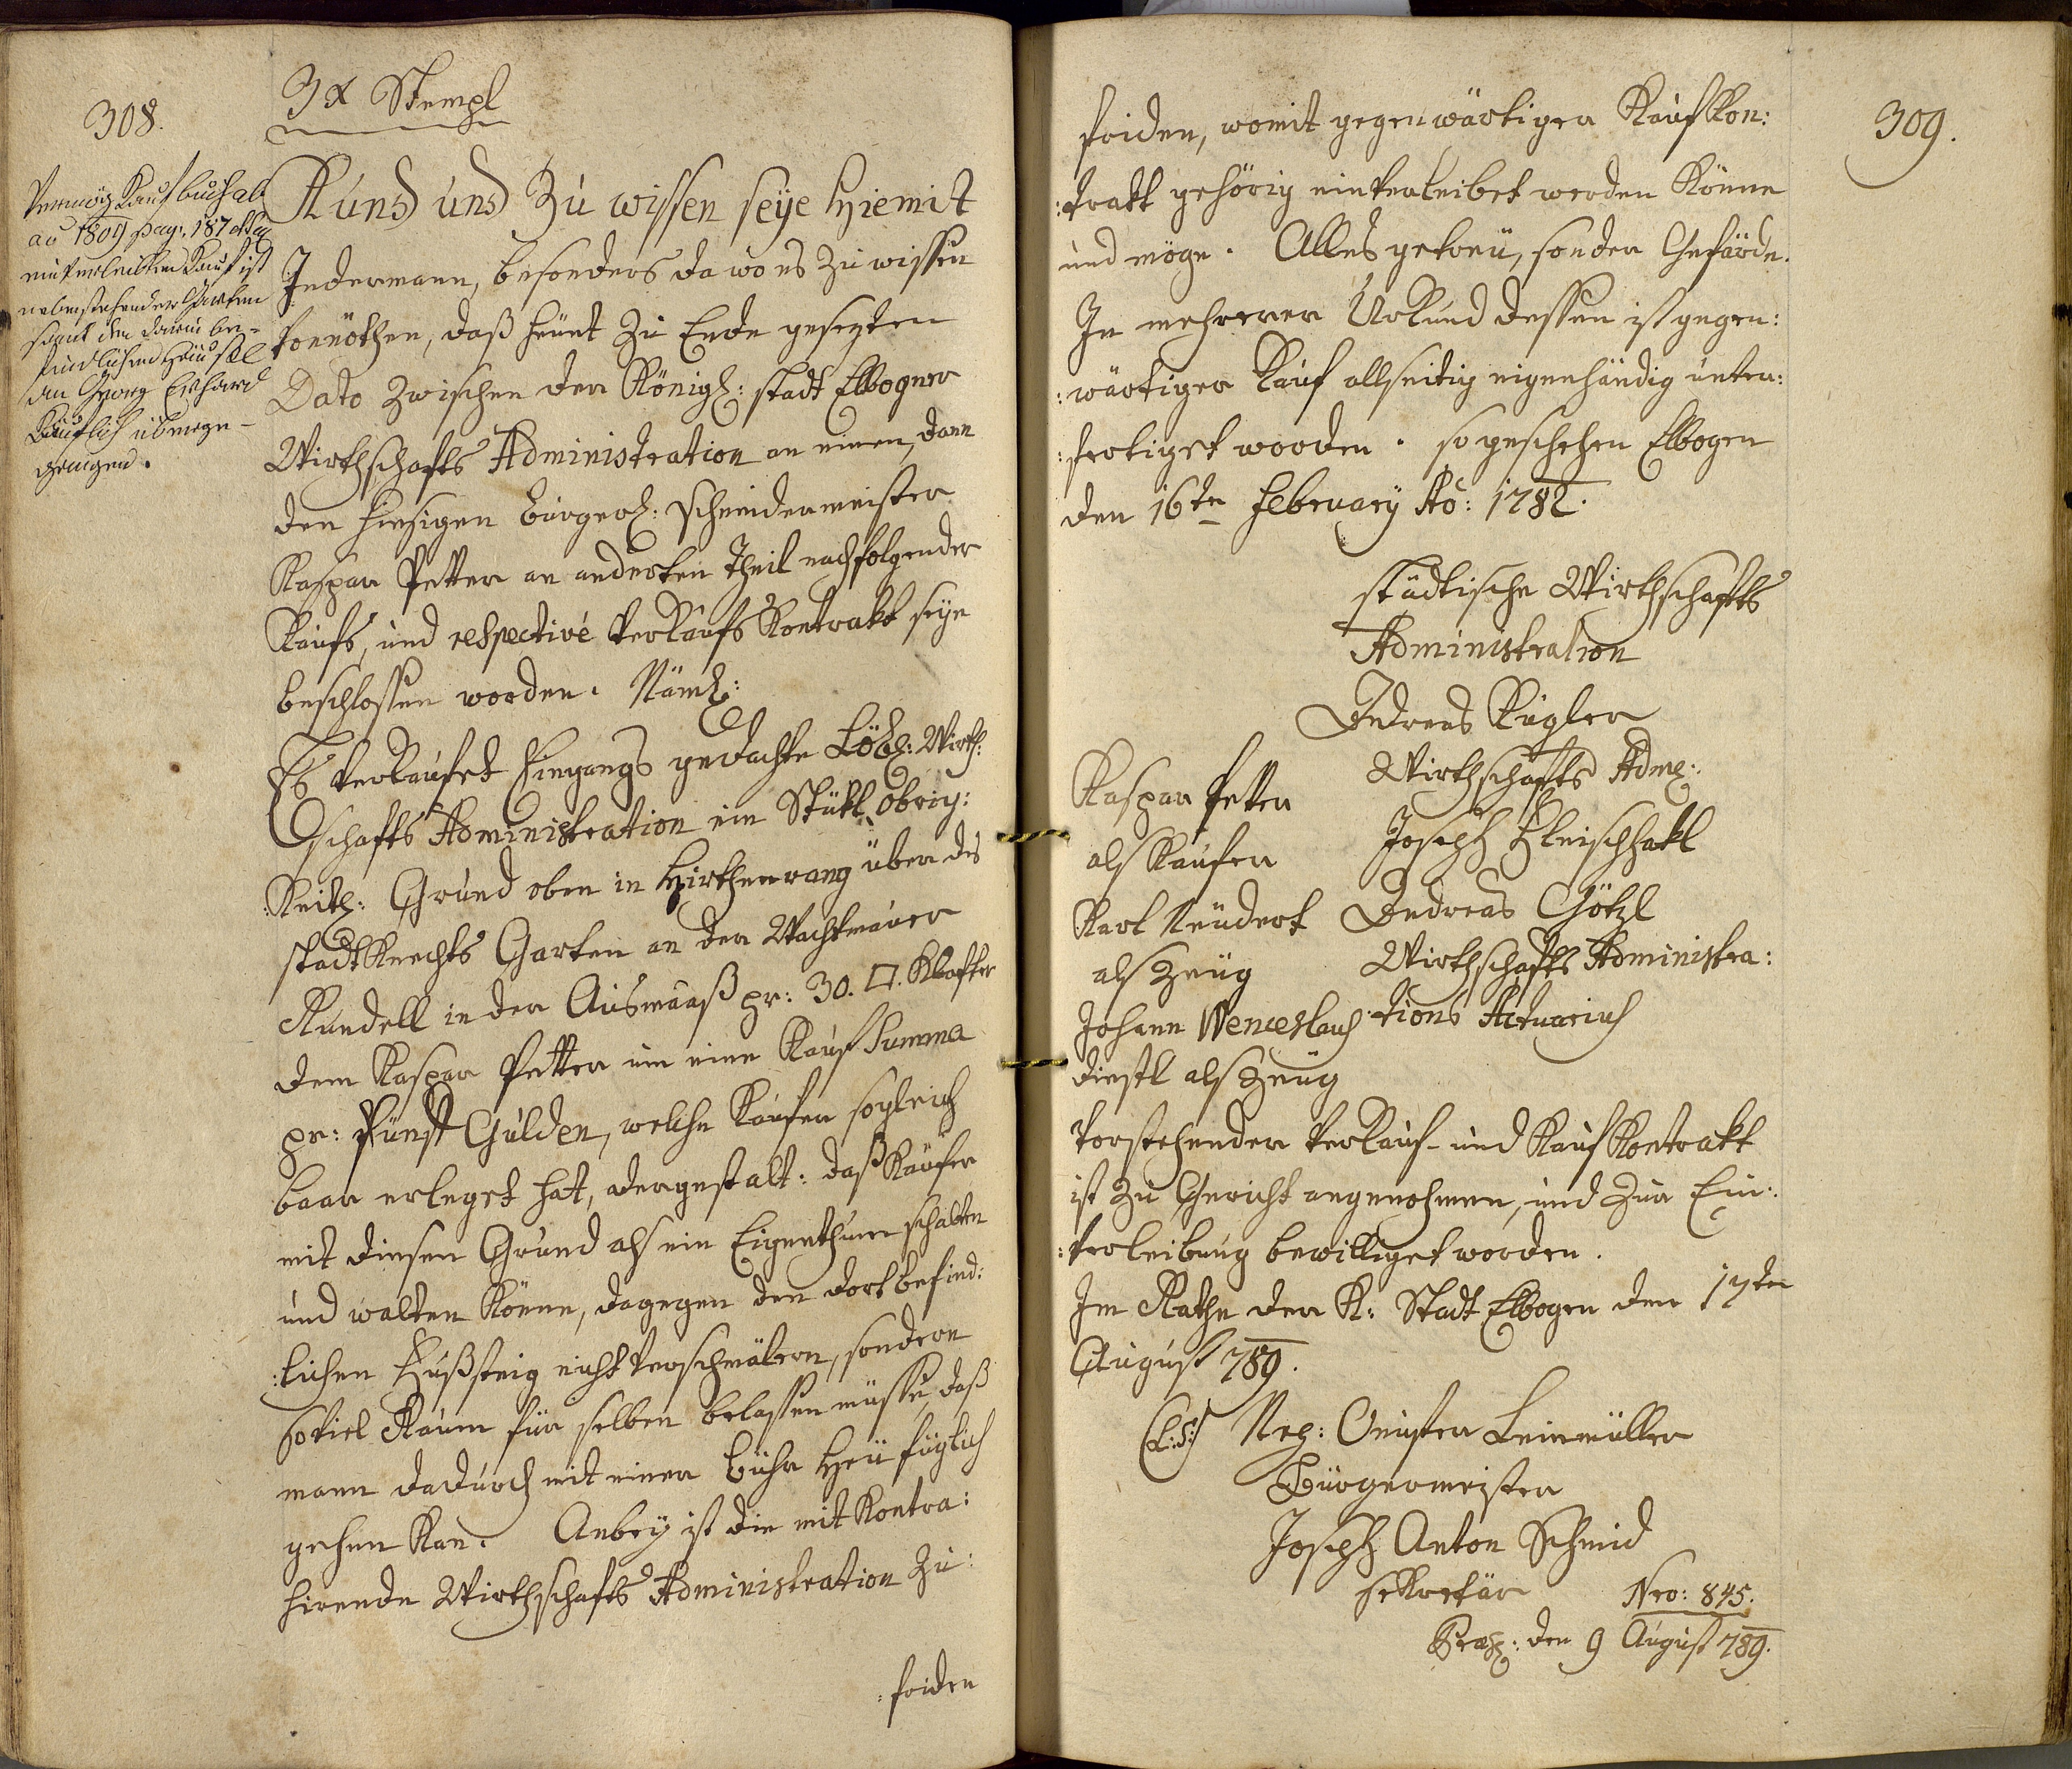 308.
3 x Stempl
Vermög Kaufbuch ab
ao 1809 pag. 187
einverleibten Kauf ist
nebenstehender Garten
samt den darein be-
findlichen Häusl
an Georg Erhard
Käuflich überge-
gangen.
Kund und Zu wissen seye Hiemit
Jedermann, besonders da wo es Zu wissen
vonnöthen, daß heünt Zu Ende gesezten
Dato Zwischen der Königl: stadt Elbogner
Wirthschafts Administration an einen, dann
den hiesigen bürgerl: Schneidermeister
Kaspar Petter an anderten Theil nachfolgender
Kaufs, und respective Verkaufs Kontrakt seye
beschlossen worden. Näml:
Es verkaufet Eingangs gedachte Löbl: Wirth:
schafts Administration ein Stükl Obrig:
:keitl: Grund oben in Hirthenrang über des
stadtknechts Garten an der Wachtmauer
Rundell in der Ausmaaß pr: 30. □. Klafter
dem Kaspar Petter um eine Kauf Summa
pr: Fünf Gulden, welche Käufer sogleich
baar erleget hat, dergestalt: daß Käufer
mit diesen Grund als ein Eigenthum schalten
und walten Könne, dagegen den dort befind:
:lichen Fußsteig nicht verschmälern, sondern
so viel Raum für selben belassen müsse, daß
mann dadurch mit einer Bühr Heü füglich
gehen Kan. Anbey ist die mit Kontra:
hirende Wirthschafts Administration Zu:
:frieden
309.
frieden, womit gegenwärtiger Kaufkon:
:trakt gehörig einverleibet werden Könne
und möge. Alles getreü, sonder Gefärde.
In mehrerer Urkund dessen ist gegen:
:wärtiger Kauf allseitig eigenhändig unter:
:fertiget worden. so geschehen Elbogen
den 16ten February Ao: 1782.
städtische Wirthschafts
Administration
Andreas Kugler
Kaspar Petter Wirthschafts Adm:
als Käufer Joseph Fleischhakl
Karl Neudert Andreas Götzl
als Zeüg Wirthschafts Administra:
Johann Wenceslaus :tions Actuarius
Diestl als Zeüg
Vorstehender Verkauf- und Kauf Kontrakt
ist Zu Gericht angenohmen, und Zur Ein:
:verleibung bewilliget worden.
Im Rathe der K: Stadt Elbogen den 17ten
August 789.
(L:S:) Leinmüller
Bürgermeister
Joseph Anton Schmid
sekretär Nro: 845.
Praes: den 9 August 789.